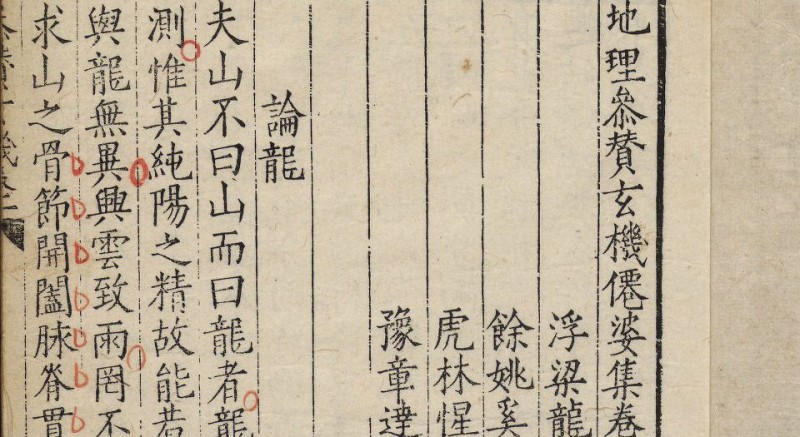 地理叅賛玄機僊婆集卷
浮梁龍
餘姚奚
虎林惺
豫章達
論龍
夫山不曰山而曰龍者龍
測惟其純陽之精故能若
與龍無異興雲致雨罔不
求山之骨節開闔脉脊貫